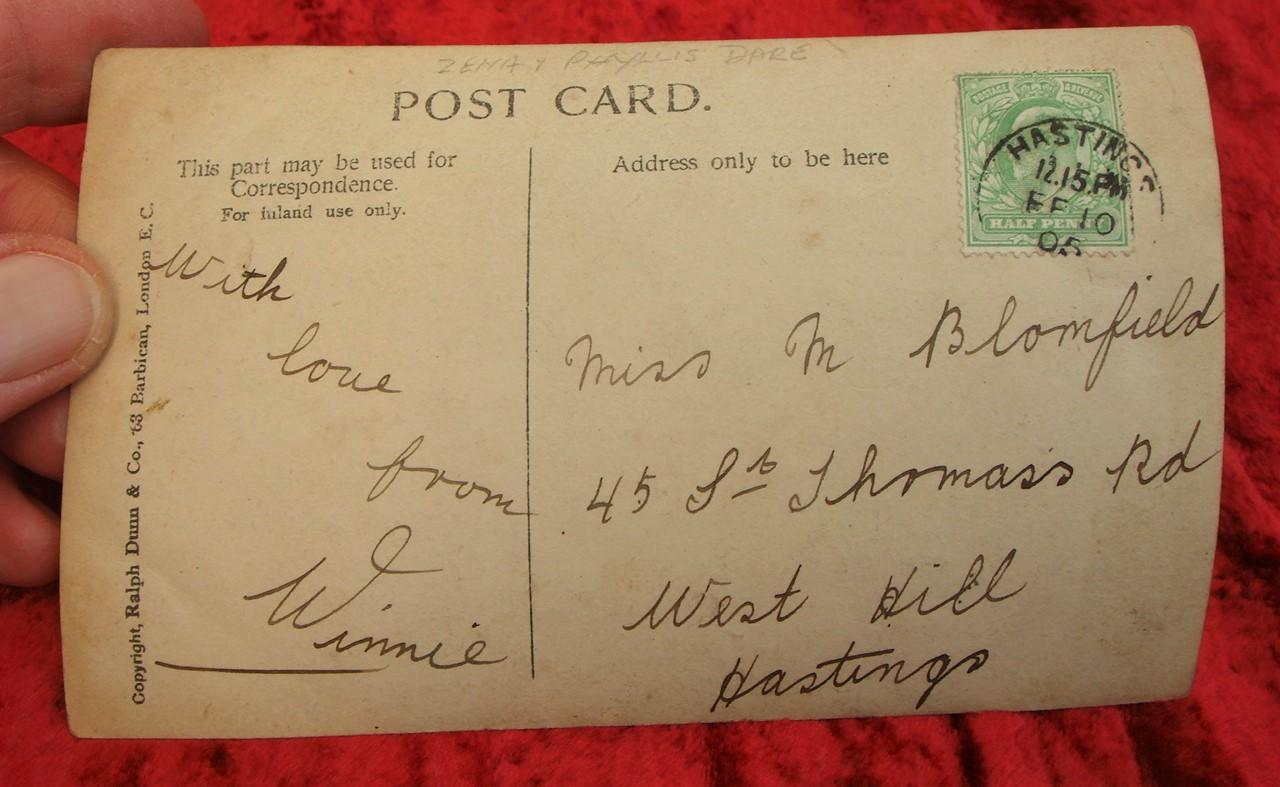 ZENA & PHYLLIS DARE
POST CARD.
This part may be used for
Correspondence.
For inland use only.
Address only to be here
POSTAGE & REVENUE
HALF PENNY
HASTINGS
12.15.PM
FE 10
05
Copyright, Ralph Dunn & Co., 63 Barbican, London E. C.
With
love
from
Winnie
Miss M Blomfield
45 St Thomass Rd
West Hill
Hastings